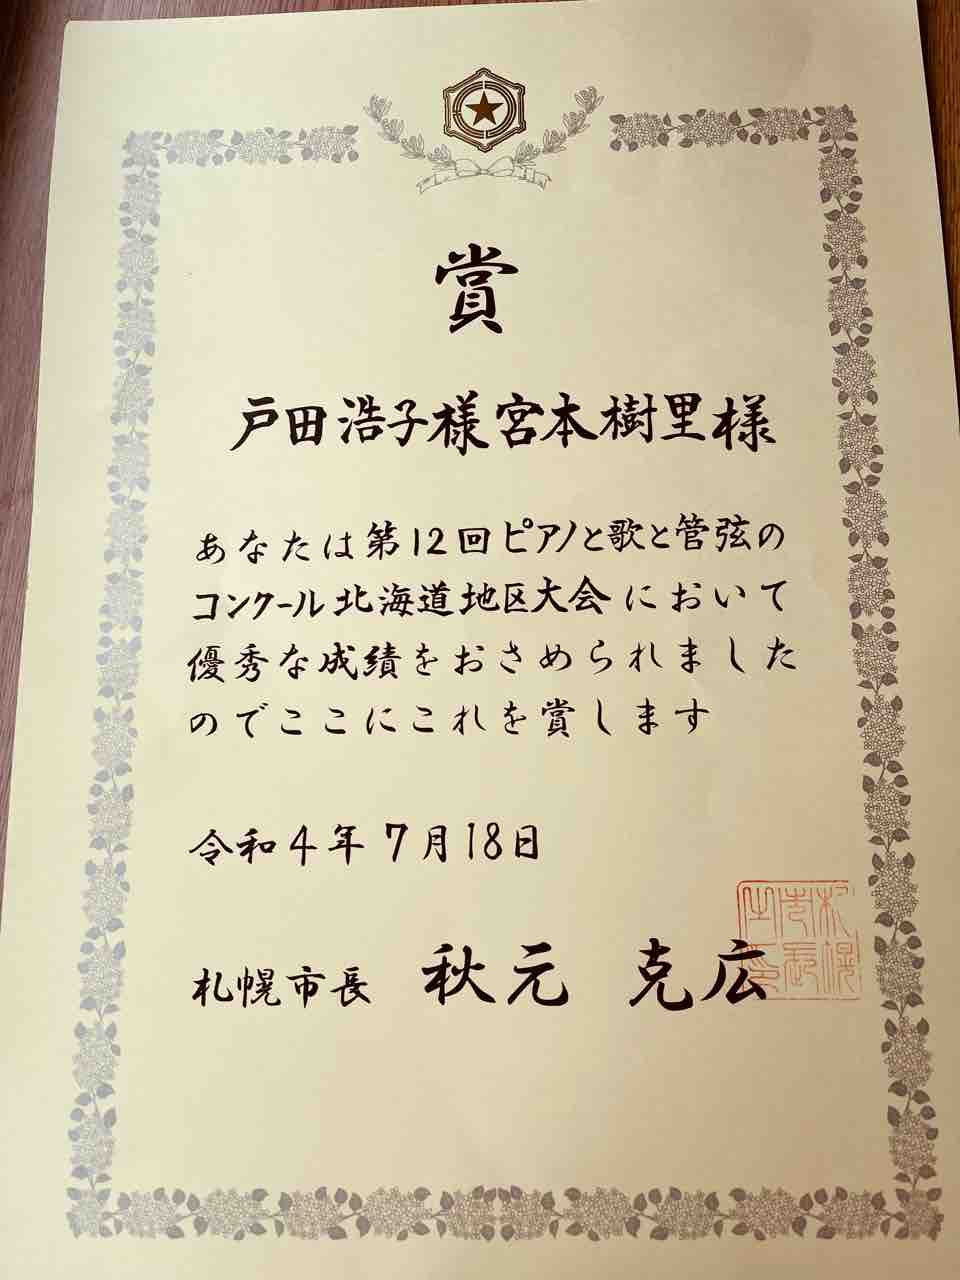 賞
戸田浩子様宮本樹里様
あなたは第12回ピアノと歌と管弦の
コンクール北海道地区大会において
優秀な成績をおさめられました
のでここにこれを賞します
令和4年7月18日
札幌市長 秋元 克広
札幌
市長
之印